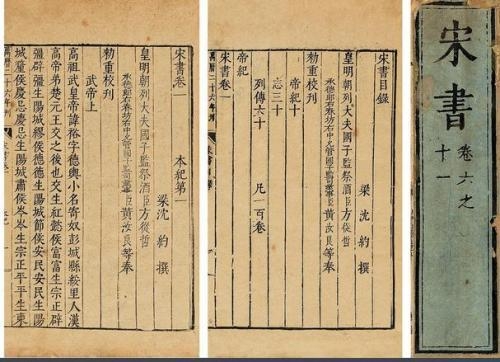 宋書
卷六之
十一
宋書目錄
梁沈約撰
皇明朝列大夫國子監祭酒臣方從哲
承德郎右春坊右中允管國子監司業事臣黃汝良等奉
勅重校刊
帝紀十
志三十
列傳六十
凡一百卷
帝紀
宋書卷一
萬曆二十六年刊
宋書卷一 本紀第一
梁沈約撰
皇明朝列大夫國子監祭酒臣方從哲
承德郎右春坊右中允管國子監司業事臣黃汝良等奉
勅重校刊
武帝上
高祖武皇帝諱裕字德輿小名寄奴彭城縣綏里人漢
高帝弟楚元王交之後也交生紅懿侯富富生宗正辟
彊辟彊生陽城繆侯德德生陽城節侯安民安民生陽
城釐侯慶忌慶忌生陽城肅侯岑岑生宗正平平生東
萬曆二十六年刊